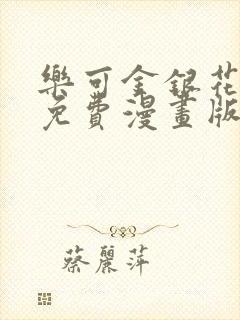 樂可金銀花
免費漫畫版
蔡麗萍